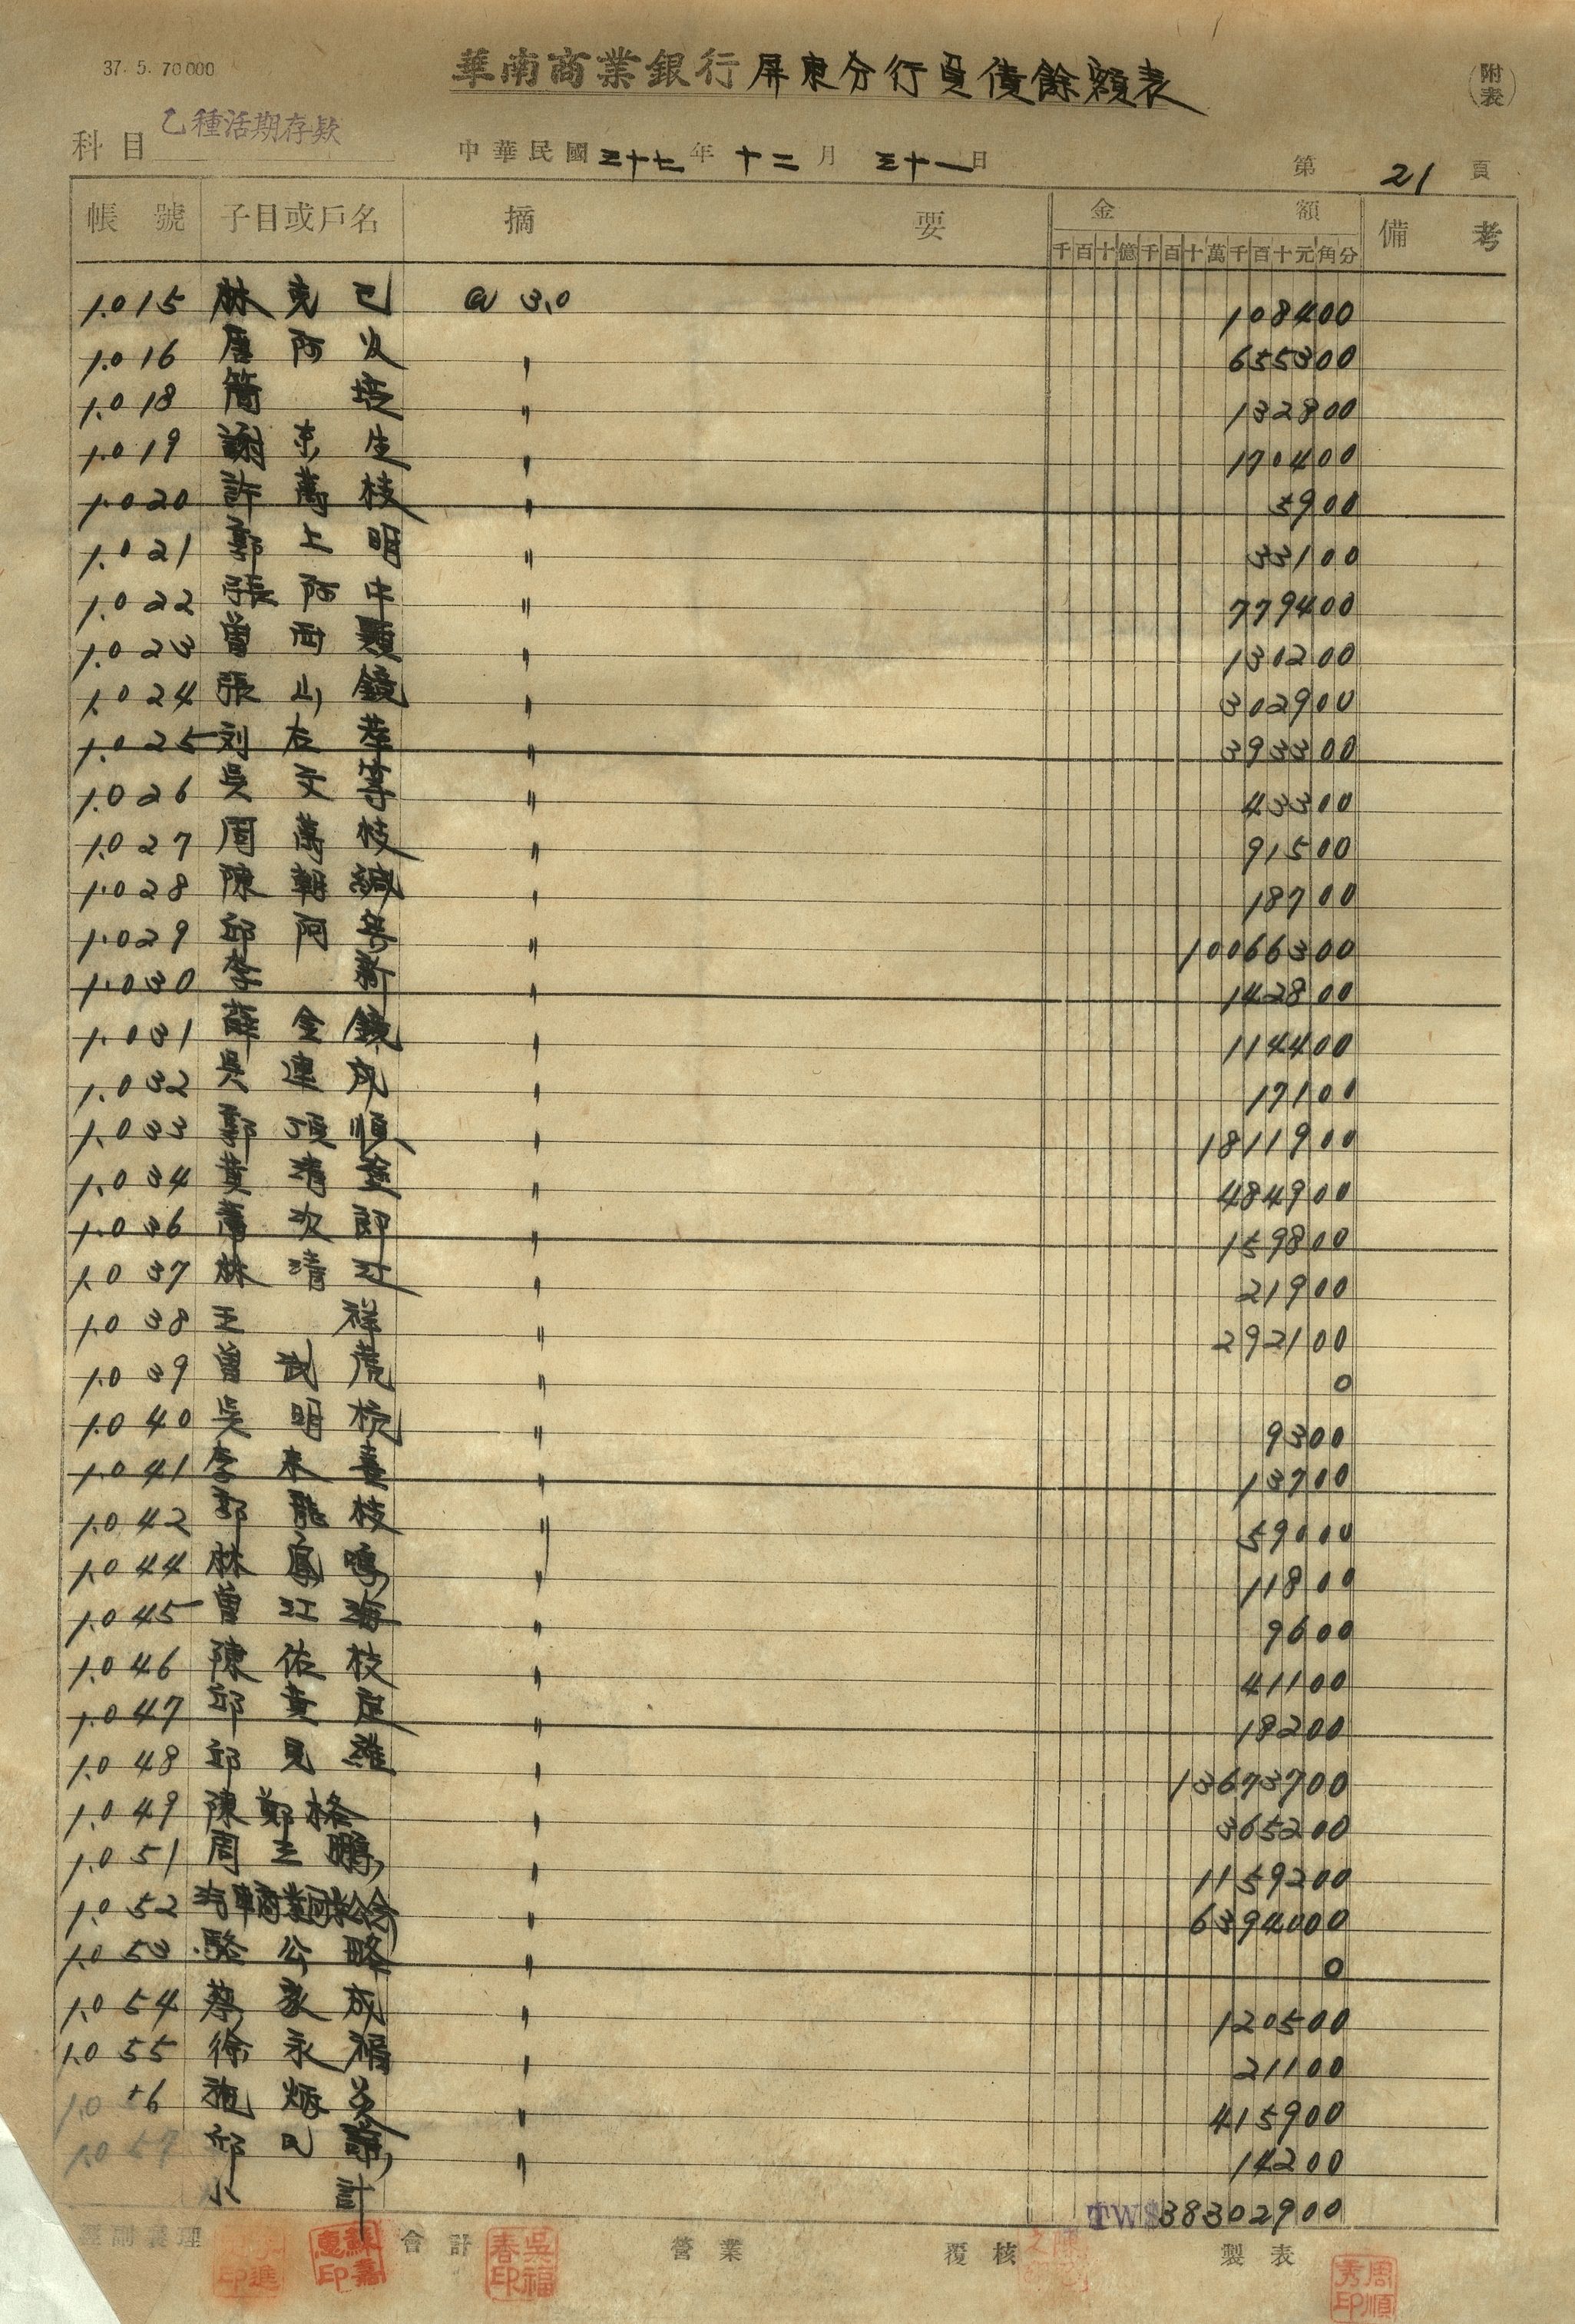 37. 5. 70000
華南商業銀行屏東分行負債餘額表
(附表)
科目 乙種活期存款 中華民國三十七年十二月三十一日 第21頁
帳號 子目或戶名 摘要 金額 備考
千百十億千百十萬千百十元角分
1.015 林克己 @ 3.0 108400
1.016 唐阿火 〃 655300
1.018 簡 〃 132800
1.019 謝東生 〃 170400
1.020 許萬枝 〃 5900
1.021 郭上明 〃 33100
1.022 張阿中 〃 779400
1.023 曾西 〃 130200
1.024 張山鏡 〃 302900
1.025 刘左 〃 393300
1.026 吳文等 〃 43300
1.027 周萬枝 〃 91500
1.028 陳朝 〃 18700
1.029 邱阿 〃 10066300
1.030 李新 〃 142800
1.031 薛金鏡 〃 114400
1.032 吳連成 〃 17100
1.033 郭順 〃 1811900
1.034 黃清 〃 484900
1.036 萬次郎 〃 159800
1.037 林清江 〃 21900
1.038 王祥 〃 292100
1.039 曾武虎 〃 0
1.040 吳明 〃 9300
1.041 李來喜 〃 13700
1.042 郭龍枝 〃 59000
1.044 林鳳鳴 〃 11800
1.045 曾江海 〃 9600
1.046 陳佑枝 〃 41100
1.047 邱貴 〃 18200
1.048 邱見 〃 13673700
1.049 陳鄭格 〃 365200
1.051 周玉鵬 〃 1159200
1.052 〃 6394000
1.053 駱公略 〃 0
1.054 蔡家成 〃 120500
1.055 徐永福 〃 21100
1.056 施炳炎 〃 415900
1.057 邱民 〃 14200
小計 TW$38302900
經副襄理 會計 營業 覆核 製表
吳福春印
周順秀印